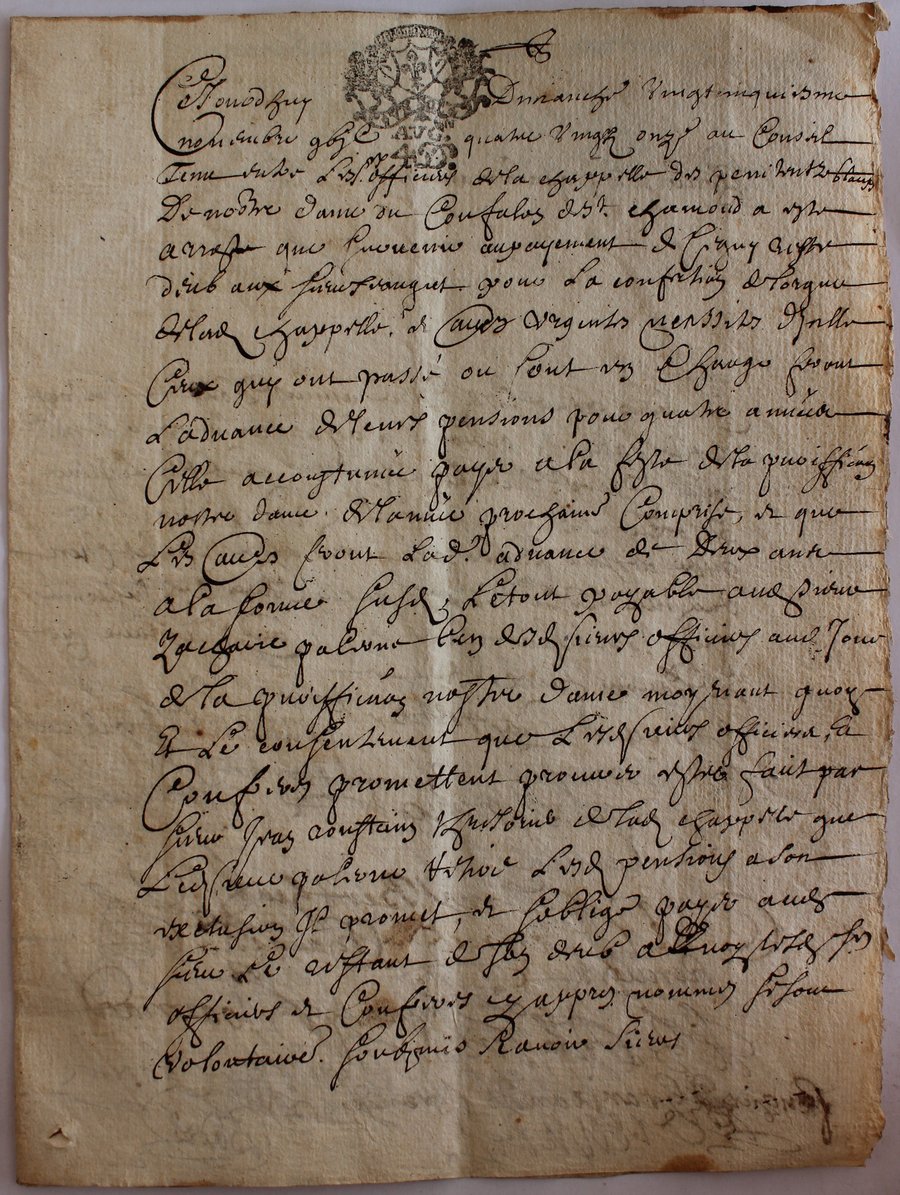 Cejourdhuy Dimanche vingtcinquiesme
novembre 96c quatre vingtz onze au Conseil
Tenu entre les srs officiers de la chappelle des penitentz blancs
De nostre dame du Confalon de st chamond a esté
arresté que pour au payement de
deub aux sieurs pour la confection de lorgue
de lad chappelle, et autres urgentes necessités dycelle
Ceux quy ont passé ou sont en Charge feront
Ladvance de leurs pensions pour quatre années
Celle accoustumée payer a la feste de la puriffica͠on
nostre dame de lannée prochaine Comprise, et que
Les autres feront lade advance de deux ans
a la forme susd, Letout payable aud sieur
Zacharie palerne lun desd sieurs officiers aud Jour
de la puriffica͠on nostre dame moyenant quoy
Et le consentement que lesd sieurs officiers et
Confreres promettent prouver estre faict par
sieur Jean roustain de lad chappelle que
Led sieur palerne retire lesd pensions a son
exclusion Il promet, et soblige payer aud
sieur le restant de son deub a quoy lesd srs
officiers et Confreres cy apres nommes se sont
volontaire soubmis Scavoir sieurs